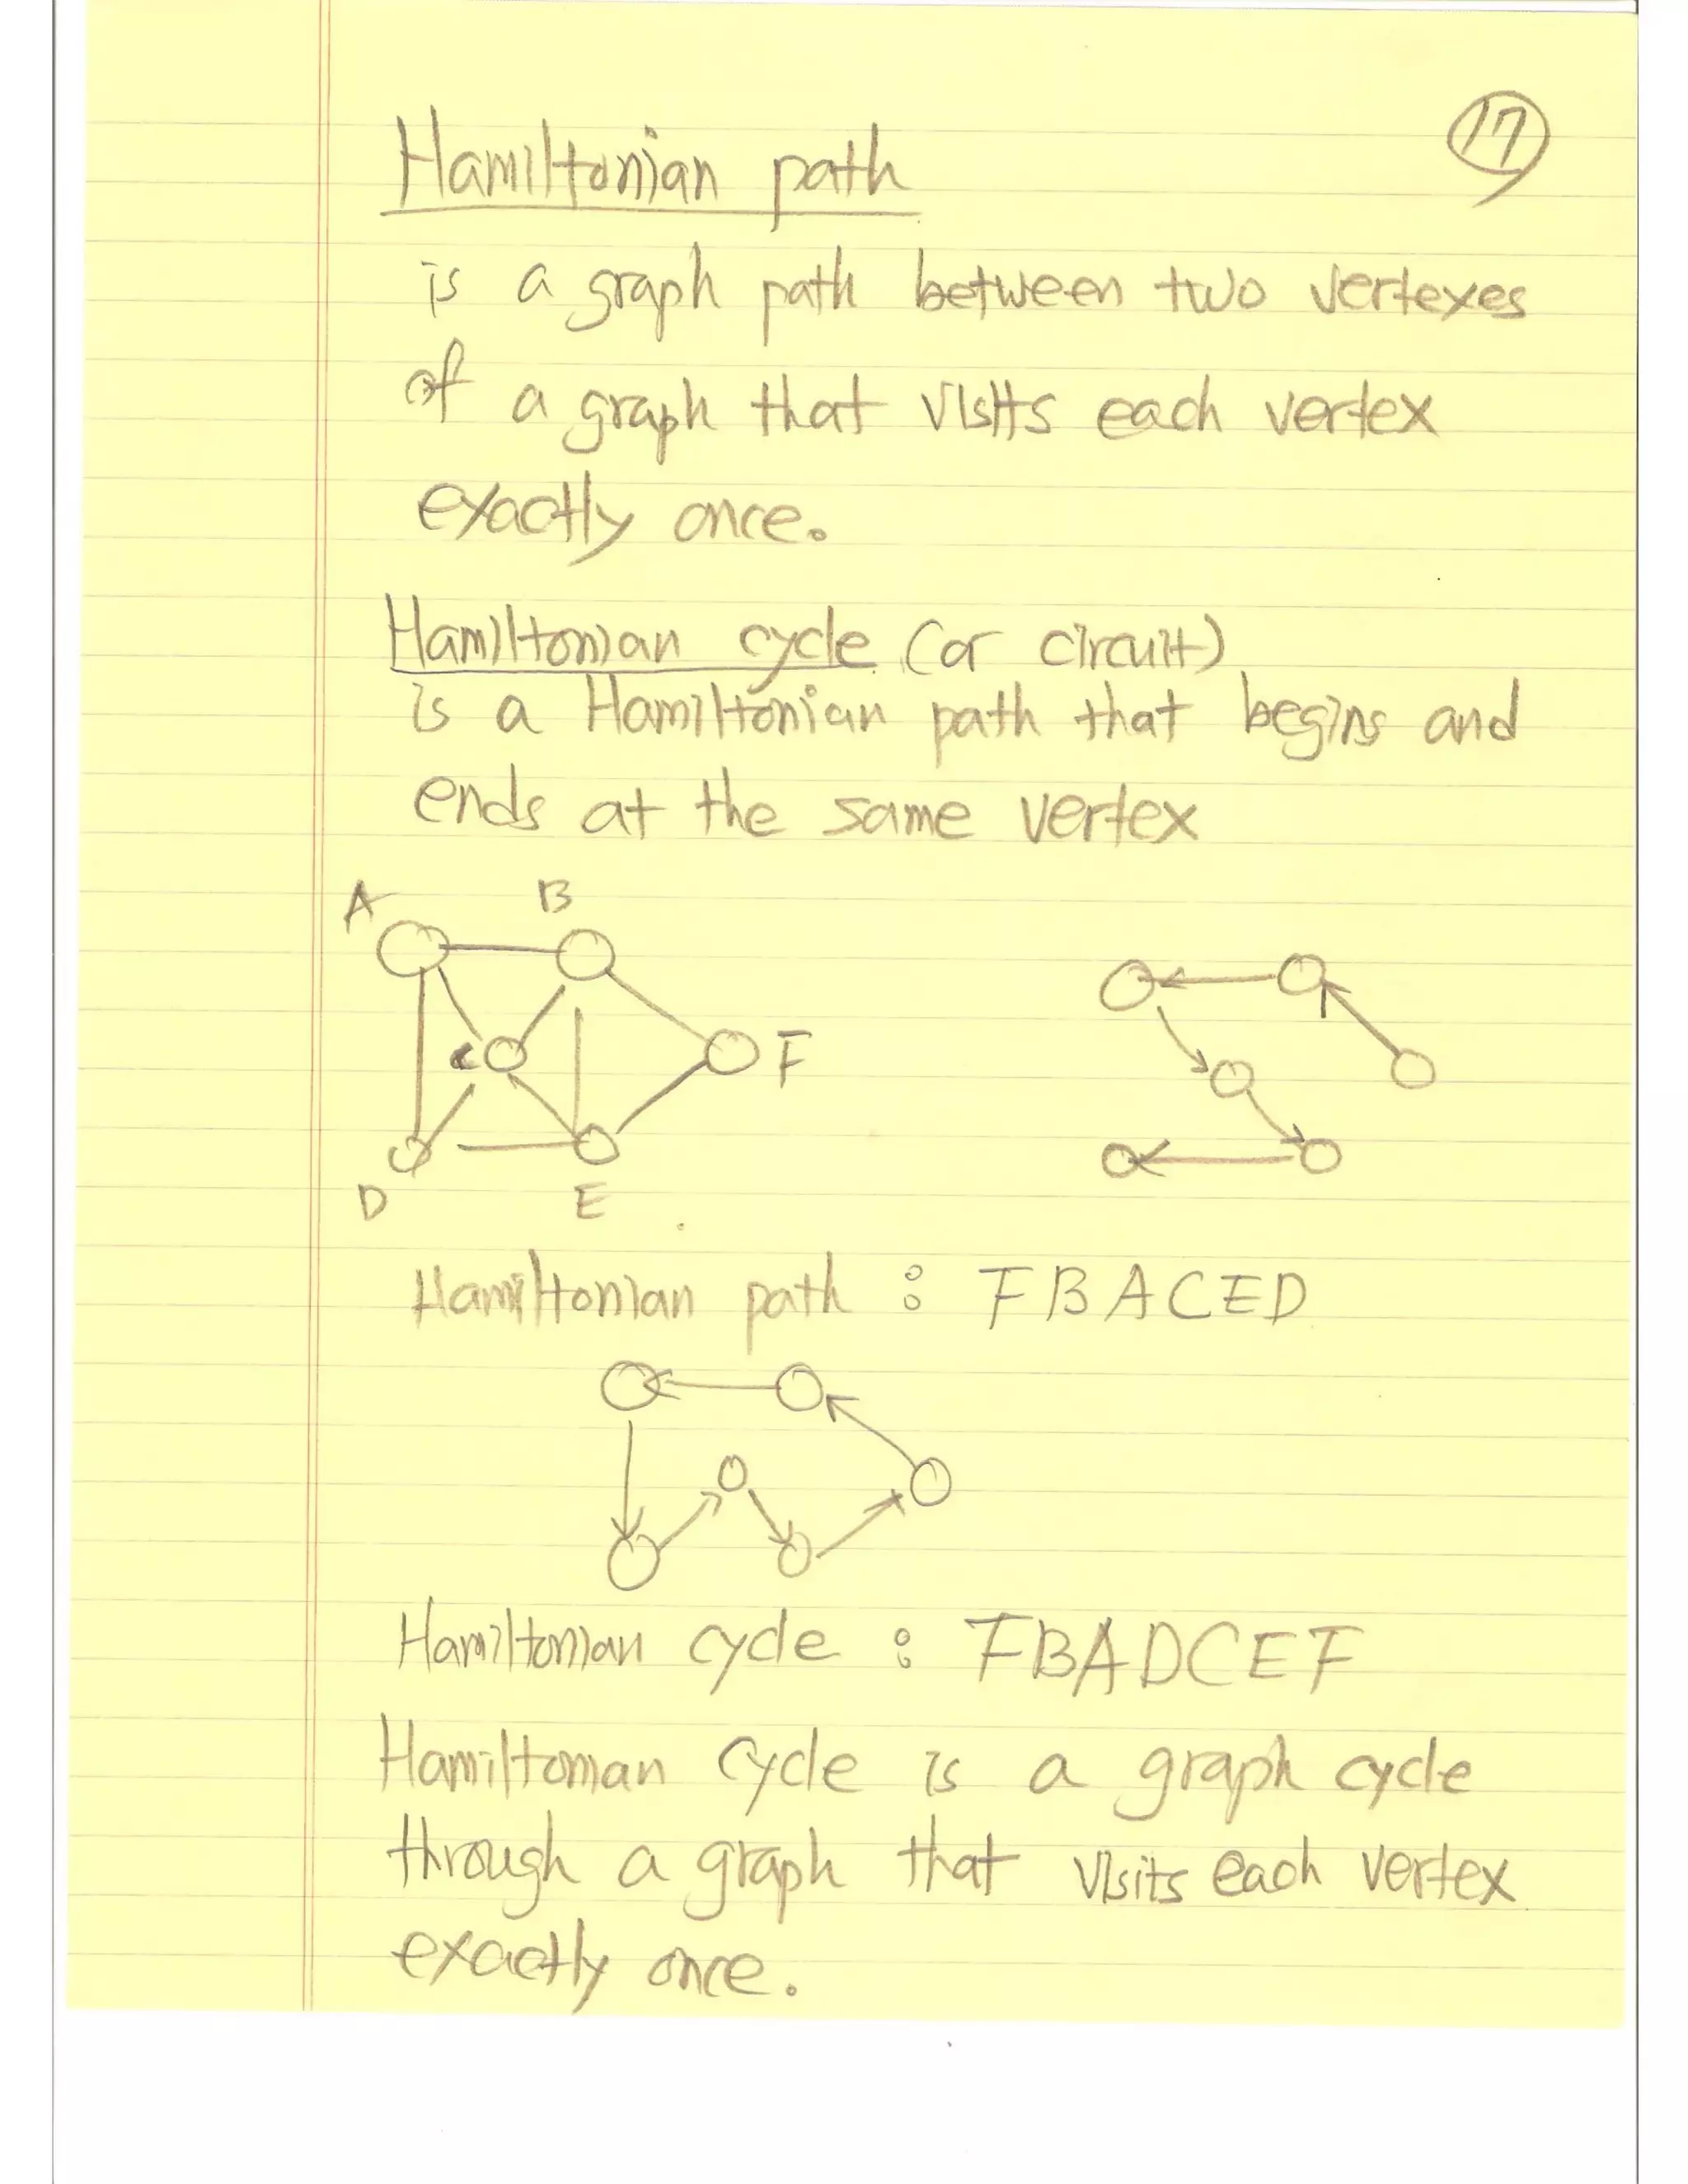 17
Hamiltonian path
is a graph path between two vertexes
of a graph that visits each vertex
exactly once.
Hamiltonian cycle (or circuit)
is a Hamiltonian path that begins and
ends at the same vertex
A B
C F
D E
Hamiltonian path : FBACED
Hamiltonian cycle : FBADCEF
Hamiltonian cycle is a graph cycle
through a graph that visits each vertex
exactly once.